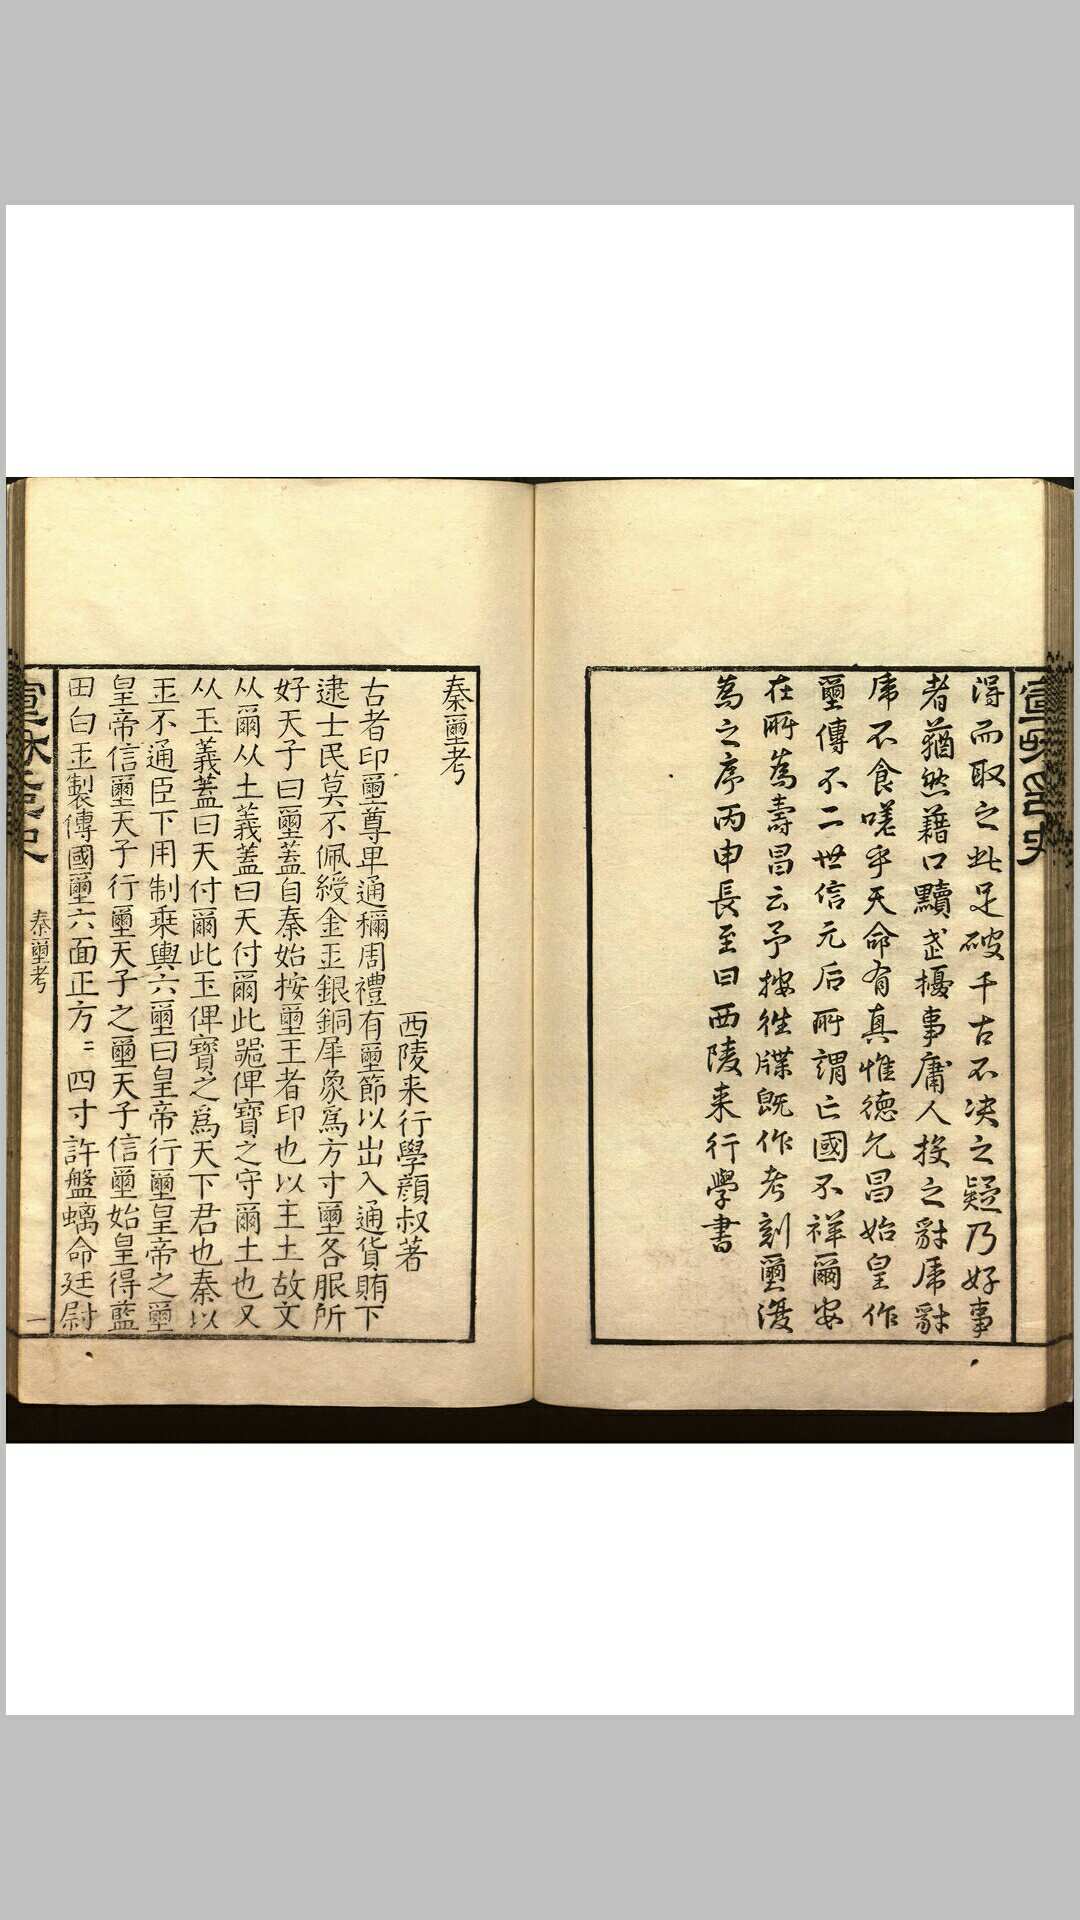 得而取之此足破千古不决之疑乃好事
者猶然藉口黷武擾事庸人投之豺虎豺
虎不食嗟乎天命有真惟德允昌始皇作
璽傳不二世信元后所謂亡國不祥爾安
在所為壽昌云予按往牒旣作考刻璽復
為之序丙申長至日西陵来行學書
秦璽考
西陵来行學顔叔著
古者印璽尊卑通稱周禮有璽節以出入通貨賄下
逮士民莫不佩綬金玉銀銅犀象爲方寸璽各服所
好天子曰璽蓋自秦始按璽王者印也以主土故文
从爾从土義蓋曰天付爾此器俾寶之守爾土也又
从玉義蓋曰天付爾此玉俾寶之爲天下君也秦以
玉不通臣下用制乘輿六璽曰皇帝行璽皇帝之璽
皇帝信璽天子行璽天子之璽天子信璽始皇得藍
田白玉製傳國璽六面正方〻四寸許盤螭命廷尉
秦璽考
一